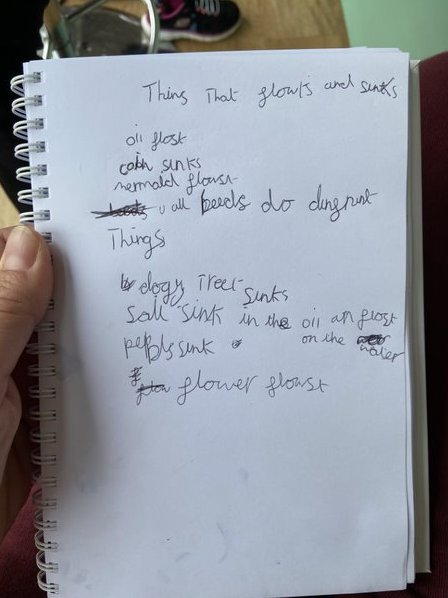 Things That flowts and sinks
oil flost
coin sinks
mermaid flowst
all beeds do dingrint
Things
dogy Treet sinks
Salt sink in the oil an flost
on the water
pepbls sink
flower flowst